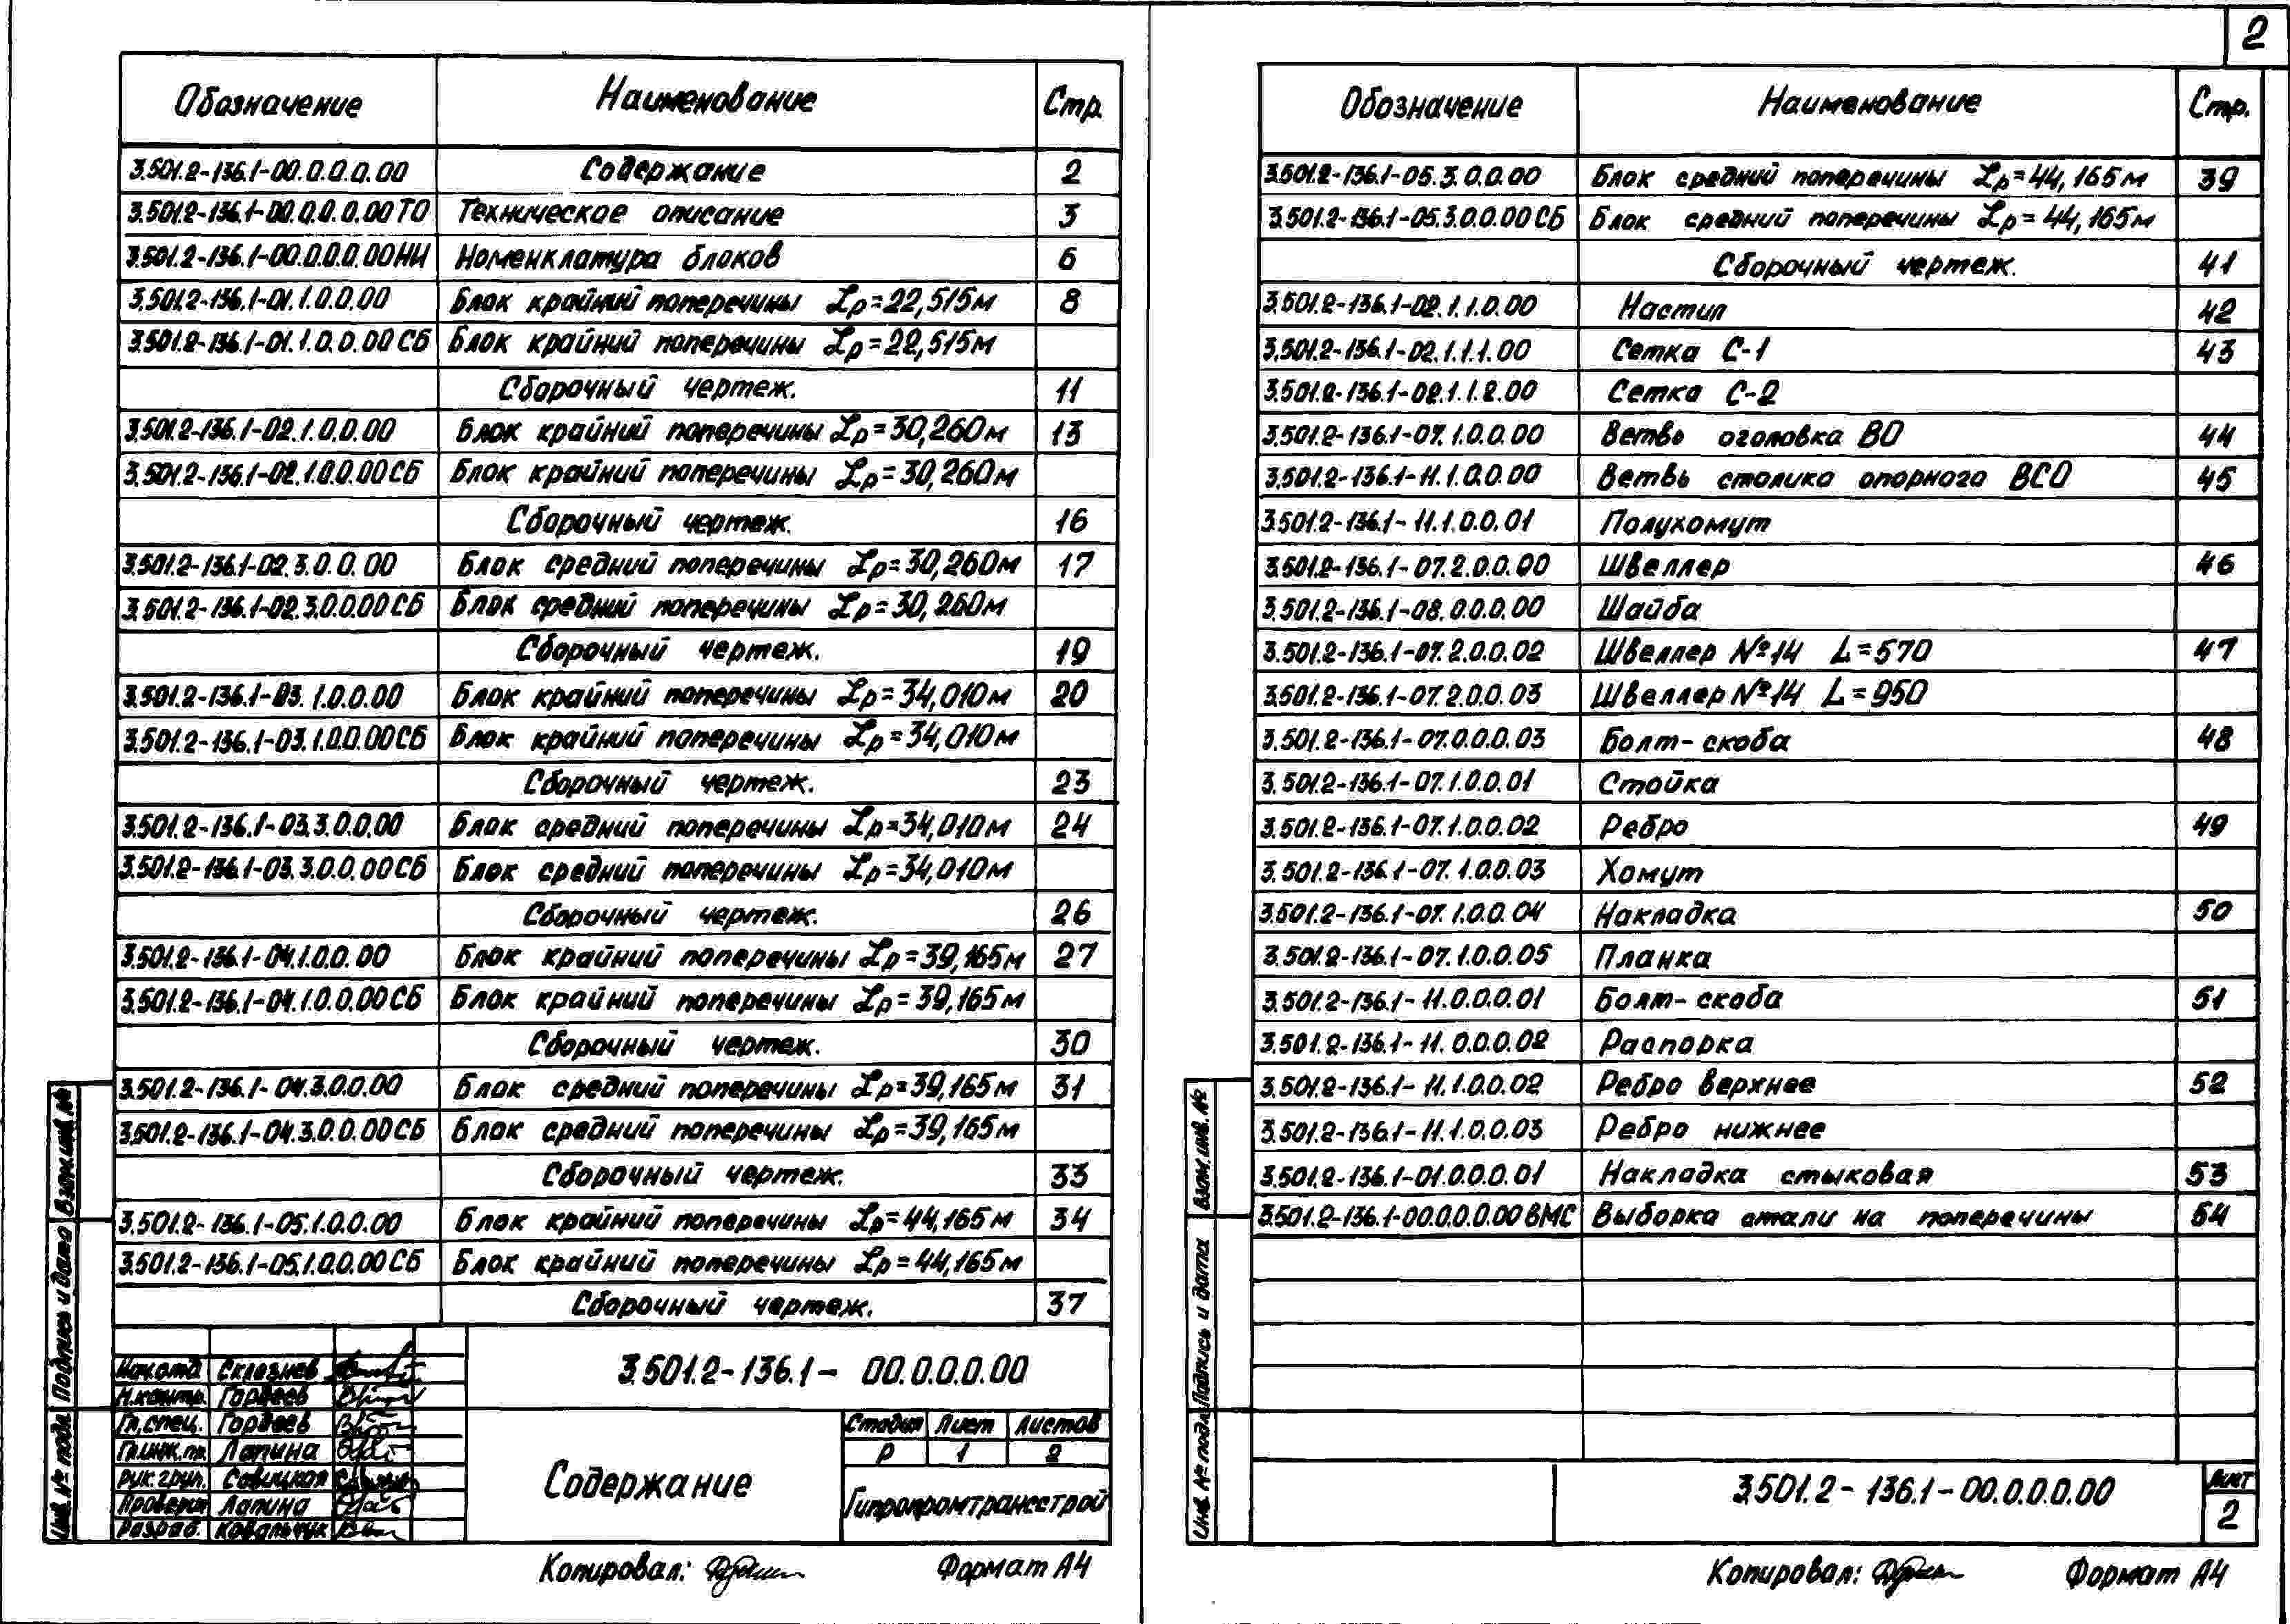 2
Обозначение Наименование Стр.
3.501.2-136.1-00.0.0.0.00 Содержание 2
3.501.2-136.1-00.0.0.0.00ТО Техническое описание 3
3.501.2-136.1-00.0.0.0.00НИ Номенклатура блоков 6
3.501.2-136.1-01.1.0.0.00 Блок крайний поперечины Lр=22,515м 8
3.501.2-136.1-01.1.0.0.00СБ Блок крайний поперечины Lр=22,515м
Сборочный чертеж. 11
3.501.2-136.1-02.1.0.0.00 Блок крайний поперечины Lр=30,260м 13
3.501.2-136.1-02.1.0.0.00СБ Блок крайний поперечины Lр=30,260м
Сборочный чертеж. 16
3.501.2-136.1-02.3.0.0.00 Блок средний поперечины Lр=30,260м 17
3.501.2-136.1-02.3.0.0.00СБ Блок средний поперечины Lр=30,260м
Сборочный чертеж. 19
3.501.2-136.1-03.1.0.0.00 Блок крайний поперечины Lр=34,010м 20
3.501.2-136.1-03.1.0.0.00СБ Блок крайний поперечины Lр=34,010м
Сборочный чертеж. 23
3.501.2-136.1-03.3.0.0.00 Блок средний поперечины Lр=34,010м 24
3.501.2-136.1-03.3.0.0.00СБ Блок средний поперечины Lр=34,010м
Сборочный чертеж. 26
3.501.2-136.1-04.1.0.0.00 Блок крайний поперечины Lр=39,165м 27
3.501.2-136.1-04.1.0.0.00СБ Блок крайний поперечины Lр=39,165м
Сборочный чертеж. 30
3.501.2-136.1-04.3.0.0.00 Блок средний поперечины Lр=39,165м 31
3.501.2-136.1-04.3.0.0.00СБ Блок средний поперечины Lр=39,165м
Сборочный чертеж. 33
3.501.2-136.1-05.1.0.0.00 Блок крайний поперечины Lр=44,165м 34
3.501.2-136.1-05.1.0.0.00СБ Блок крайний поперечины Lр=44,165м
Сборочный чертеж. 37
Взам.инв.№
Подпись и дата
Инв.№ подл.
Нач.отд Склезнев
Н.контр. Гордеев
Гл.спец. Гордеев
Гл.инж.пр. Лапина
Рук.груп. Савицкая
Проверил Лапина
Разраб. Ковальчук
3.501.2-136.1- 00.0.0.0.00
Содержание
Стадия Лист Листов
Р 1 2
Гипропромтрансстрой
Копировал: Формат А4
Обозначение Наименование Стр.
3.501.2-136.1-05.3.0.0.00 Блок средний поперечины Lр=44,165м 39
3.501.2-136.1-05.3.0.0.00СБ Блок средний поперечины Lр=44,165м
Сборочный чертеж. 41
3.501.2-136.1-02.1.1.0.00 Настил 42
3.501.2-136.1-02.1.1.1.00 Сетка С-1 43
3.501.2-136.1-02.1.1.2.00 Сетка С-2
3.501.2-136.1-07.1.0.0.00 Ветвь оголовка ВО 44
3.501.2-136.1-11.1.0.0.00 Ветвь столика опорного ВСО 45
3.501.2-136.1-11.1.0.0.01 Полухомут
3.501.2-136.1-07.2.0.0.00 Швеллер 46
3.501.2-136.1-08.0.0.0.00 Шайба
3.501.2-136.1-07.2.0.0.02 Швеллер №14 L=570 47
3.501.2-136.1-07.2.0.0.03 Швеллер №14 L=950
3.501.2-136.1-07.0.0.0.03 Болт-скоба 48
3.501.2-136.1-07.1.0.0.01 Стойка
3.501.2-136.1-07.1.0.0.02 Ребро 49
3.501.2-136.1-07.1.0.0.03 Хомут
3.501.2-136.1-07.1.0.0.04 Накладка 50
3.501.2-136.1-07.1.0.0.05 Планка
3.501.2-136.1-11.0.0.0.01 Болт-скоба 51
3.501.2-136.1-11.0.0.0.02 Распорка
3.501.2-136.1-11.1.0.0.02 Ребро верхнее 52
3.501.2-136.1-11.1.0.0.03 Ребро нижнее
3.501.2-136.1-01.0.0.0.01 Накладка стыковая 53
3.501.2-136.1-00.0.0.0.00ВМС Выборка стали на поперечины 54
Взам.инв.№
Подпись и дата
Инв.№ подл.
3.501.2-136.1-00.0.0.0.00
Лист
2
Копировал: Формат А4